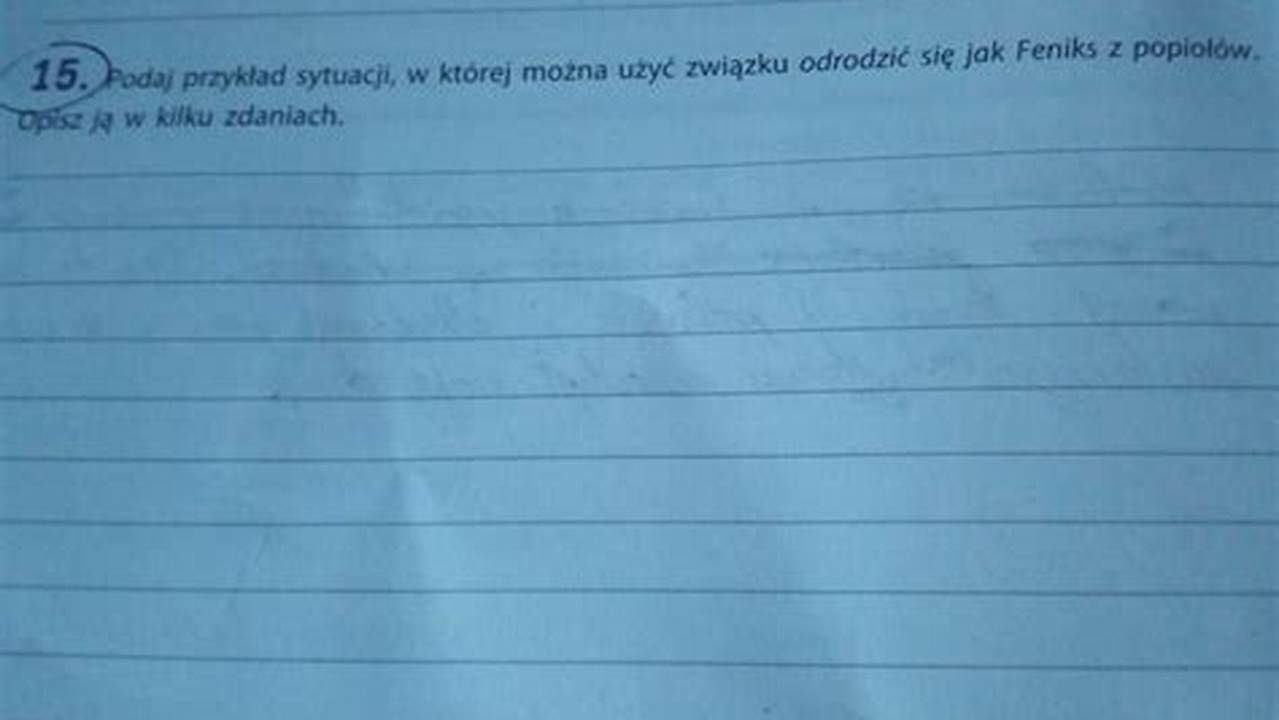 15. Podaj przykład sytuacji, w której można użyć związku odrodzić się jak Feniks z popiołów.
Opisz ją w kilku zdaniach.